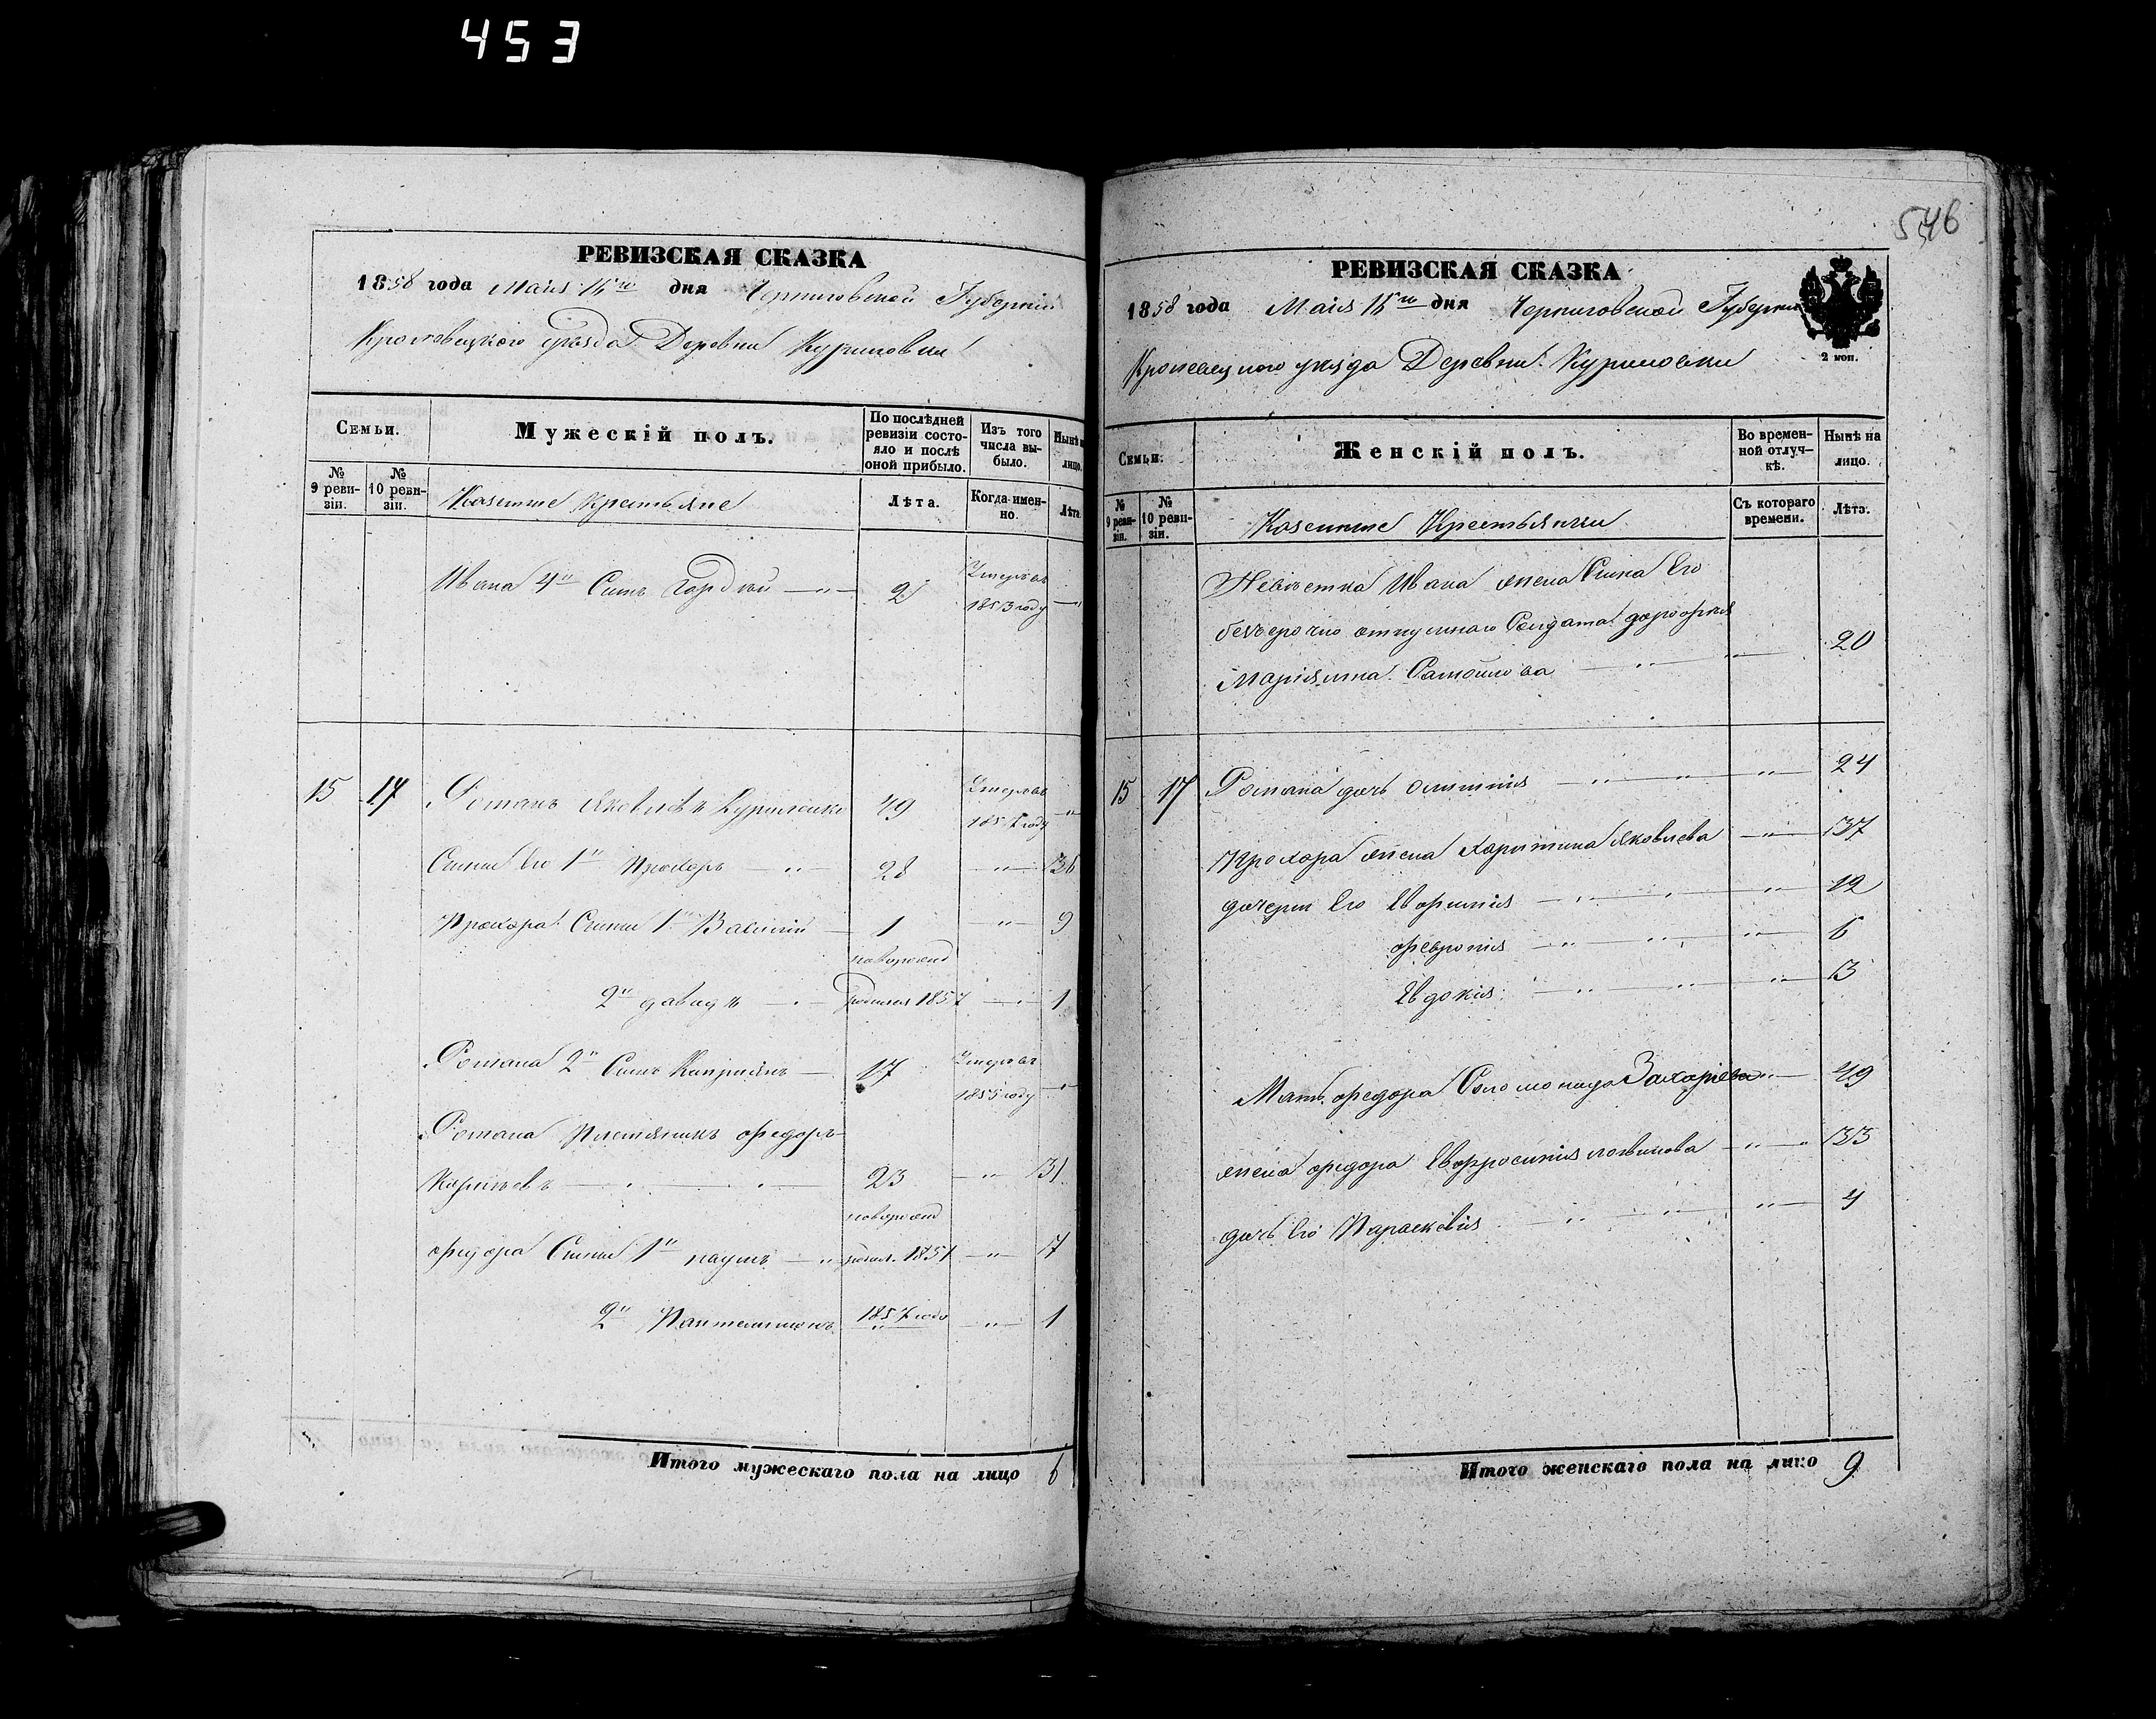 453
546
РЕВИЗСКАЯ СКАЗКА
1858 года Маія 15го дня Черниговской Губерніи
Кролевецкого уѣзда Деревни Куриловки
Семьи.
Мужескій полъ.
По послѣдней ревизіи состояло и послѣ оной прибыло.
Изъ того числа выбыло.
Нынѣ на лицо.
№ 9 ревизіи.
№ 10 ревизіи.
Казенные крестьяне
Лѣта.
Когда именно.
Лѣта
Ивана 4й Сынъ Гордѣй 2 Умеръ въ 1853 году
15 17 Романъ Яковлевъ Куриленко 49 Умеръ въ 1857 году
Сыны Его 1й Прохоръ 28 36
Прохора Сыны 1й Василий 1 9
новорожд
2й давидъ родился 1857 1
Романа 2й Сынъ Кипріянъ 17 Умеръ въ 1855 году
Романа Племянникъ Федоръ
Корнѣевъ 23 31
новорожд
Федора Сыны 1й наумъ родил. 1851 7
2й Пантелимонъ 1857 году 1
Итого мужескаго пола на лицо 6
РЕВИЗСКАЯ СКАЗКА
1858 года Маія 15го дня Черниговской Губерніи
2 коп.
Кролевецкого уѣзда Деревни Куриловки
Семьи.
Женскій полъ.
Во временной отлучкѣ.
Нынѣ на лицо.
№ 9 ревизіи.
№ 10 ревизіи.
Казенные Крестьянки
Съ котораго времени.
Лѣта.
Невѣстка Ивана жена Сына Его
безсрочно отпускнаго Солдата дорофея
Маріянна Самойлова 20
15 17 Романа дочь 24
Прохора жена Харитина Яковлева 37
дочери Его Евфимія 12
Феврония 6
Евдокия 3
Мать Федора Соломонида Захаріева 49
жена Федора Евфросинія логвинова 33
дочь Его Параскевия 4
Итого женскаго пола на лицо 9